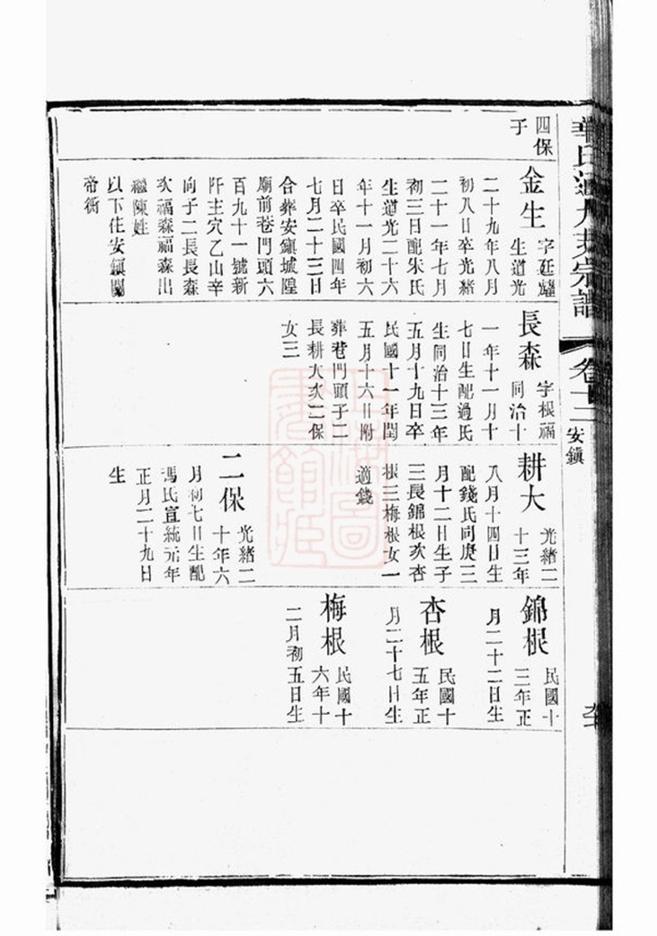 華氏通九支宗譜
卷十三
安鎮
四保
子
金生
字廷燿
生道光
二十九年八月
初八日卒光緒
二十一年七月
初三日配朱氏
生道光二十六
年十一月初六
日卒民國四年
七月二十三日
合葬安鎮城隍
廟前巷門頭六
百九十一號新
阡主穴乙山辛
向子二長長森
次福森福森出
繼陳姓
以下住安鎮關
帝衖
長森
字根福
同治十
一年十一月十
七日生配過氏
生同治十三年
五月十九日卒
民國十一年閏
五月十六日附
葬巷門頭子二
長耕大次二保
女三
耕大
光緒二
十三年
八月十四日生
配錢氏同庚三
月十二日生子
三長錦根次杏
根三梅根女一
適錢
二保
光緒二
十年六
月初七日生配
馮氏宣統元年
正月二十九日
生
錦根
民國十
三年正
月二十二日生
杏根
民國十
五年正
月二十七日生
梅根
民國十
六年十
二月初五日生